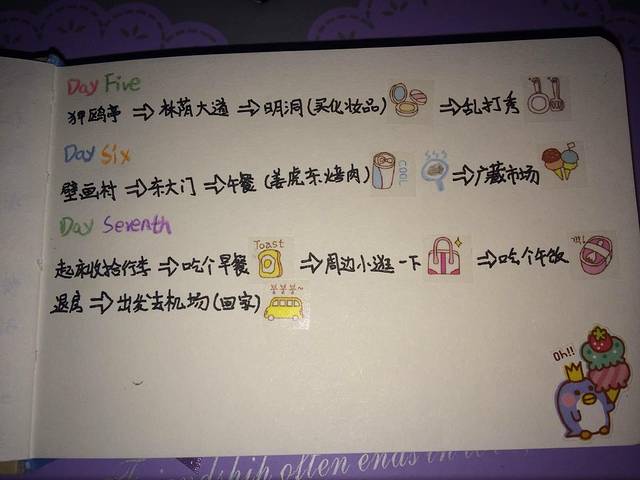 Day Five
狎鸥亭 ⇒ 林荫大道 ⇒ 明洞(买化妆品) ⇒ 乱打秀
Day Six
壁画村 ⇒ 东大门 ⇒ 午餐 (姜虎东烤肉) COOL ⇒ 广藏市场
Day Seventh
起床收拾行李 ⇒ 吃个早餐 Toast ⇒ 周边小逛一下 ⇒ 吃个午饭
退房 ⇒ 出发去机场(回家)
Oh!!
Friendship often ends in